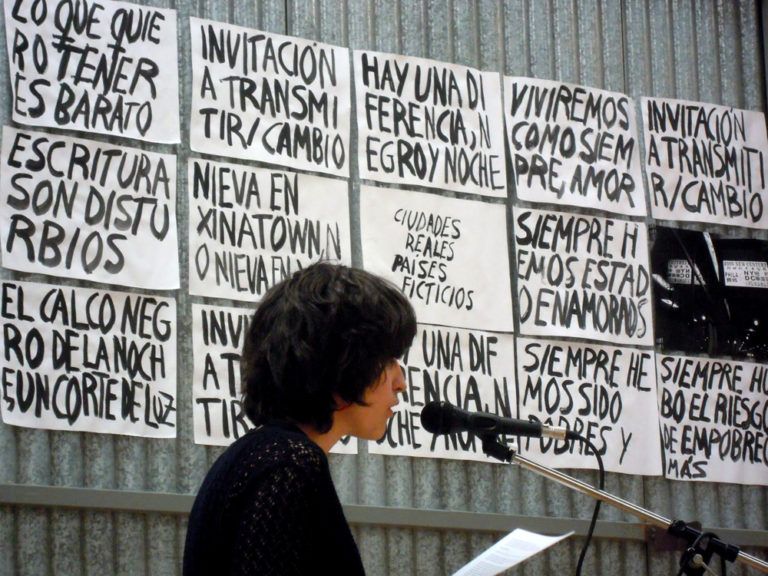 LO QUE QUIE
RO TENER
ES BARATO
INVITACIÓN
A TRANSMI
TIR/CAMBIO
HAY UNA DI
FERENCIA, N
EGRO Y NOCHE
VIVIREMOS
COMO SIEM
PRE, AMOR
INVITACIÓN
A TRANSMITI
R/CAMBIO
ESCRITURA
SON DISTU
RBIOS
NIEVA EN
XINATOWN, N
O NIEVA EN
CIUDADES
REALES
PAÍSES
FICTICIOS
SIEMPRE H
EMOS ESTAD
O ENAMORADOS
EL CALCO NEG
RO DE LA NOCH
E, UN CORTE DE LUZ
INVI
A T
TIR/
UNA DIF
ERENCIA, N
OCHE
SIEMPRE HE
MOS SIDO
POBRES Y
SIEMPRE HU
BO EL RIESGO
DE EMPOBREC
MÁS